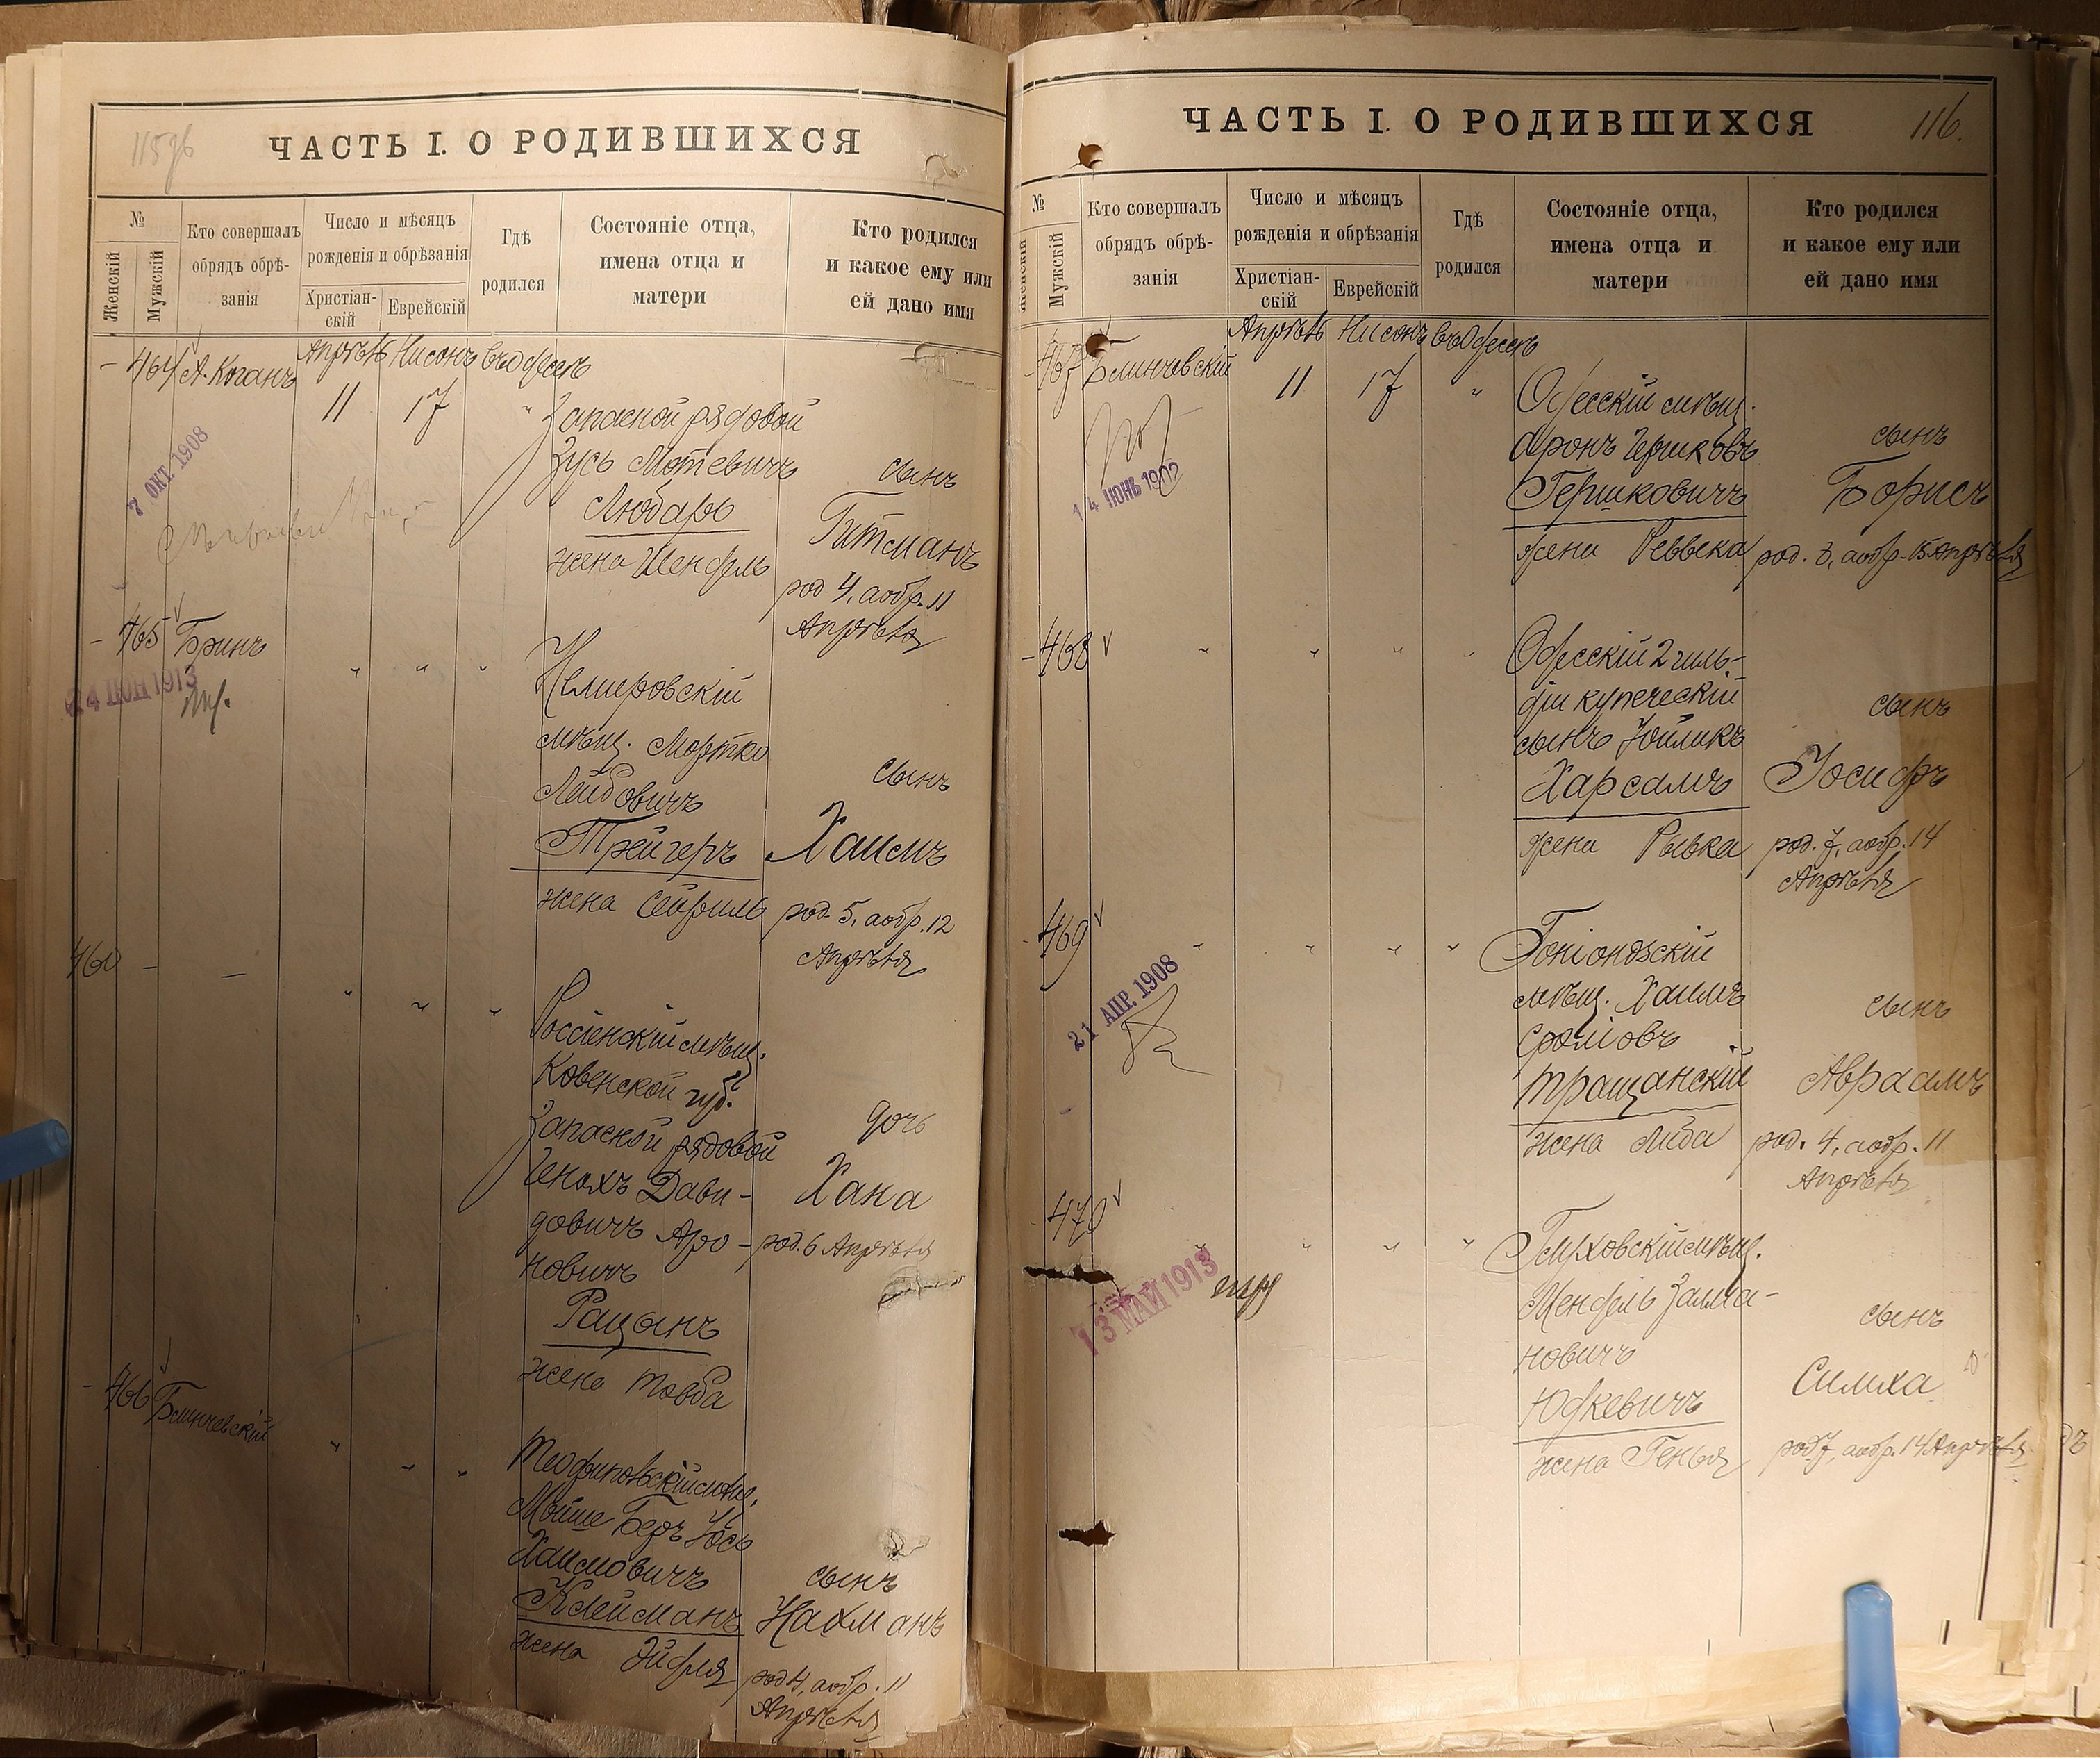 115об
ЧАСТЬ I. О РОДИВШИХСЯ
№
Женскій
Мужскій
Кто совершалъ
обрядъ обрѣ-
занія
Число и мѣсяцъ
рожденія и обрѣзанія
Христіан-
скій
Еврейскій
Гдѣ
родился
Состояніе отца,
имена отца и
матери
Кто родился
и какое ему или
ей дано имя
- 464 А. Коганъ
Апрѣль Нисонъ въ Одессѣ
11 17 "
Запасной рядовой
Зусь Мотевичъ
Любарь
жена Шендль
сынъ
Гитманъ
род. 4, а обр. 11
Апрѣля
7 ОКТ. 1908
- 465 Бринъ
" " "
24 ІЮН 1913
Немировскій
мѣщ. Мортко
Лейбовичъ
Трейгеръ
жена Сейриль
сынъ
Хаимъ
род. 5, а обр. 12
Апрѣля
460 - -
" " "
Россіенскій мѣщ.
Ковенской губ.
Запасной рядовой
Генохъ Дави-
довичъ Аро-
новичъ
Рацынъ
жена Товба
дочь
Хана
род. 6 Апрѣля
- 466 Блинчевскій
" " "
Теофипольскій мѣщ.
Мойше Беръ Іось
Хаимовичъ
Клейманъ
жена Эйдля
сынъ
Нахманъ
род 4, а обр. 11
Апрѣля
116.
ЧАСТЬ I. О РОДИВШИХСЯ
№
Женскій
Мужскій
Кто совершалъ
обрядъ обрѣ-
занія
Число и мѣсяцъ
рожденія и обрѣзанія
Христіан-
скій
Еврейскій
Гдѣ
родился
Состояніе отца,
имена отца и
матери
Кто родился
и какое ему или
ей дано имя
- 467 Блинчевскій
Апрѣль Нисонъ въ Одессѣ
11 17 "
14 ІЮНЬ 1902
Одесскій мѣщ.
Аронъ Гершковъ
Гершковичъ
жена Реввека
сынъ
Борисъ
род. 3, а обр. 15 Апрѣля
- 468
" " " "
Одесскій 2 гиль-
діи купеческій
сынъ Іойликъ
Харсамъ
жена Рывка
сынъ
Іосифъ
род. 7, а обр. 14
Апрѣля
- 469
" " " "
21 АПР. 1908
Гоніондзскій
мѣщ. Хаимъ
Сроліовъ
Трацанскій
жена Либа
сынъ
Авраамъ
род. 4, а обр. 11
Апрѣля
- 470
" " " "
13 МАЙ 1913
Глуховскій мѣщ.
Мендль Залма-
новичъ
Юдкевичъ
жена Генья
сынъ
Симха
род 7, а обр. 14 Апрѣля